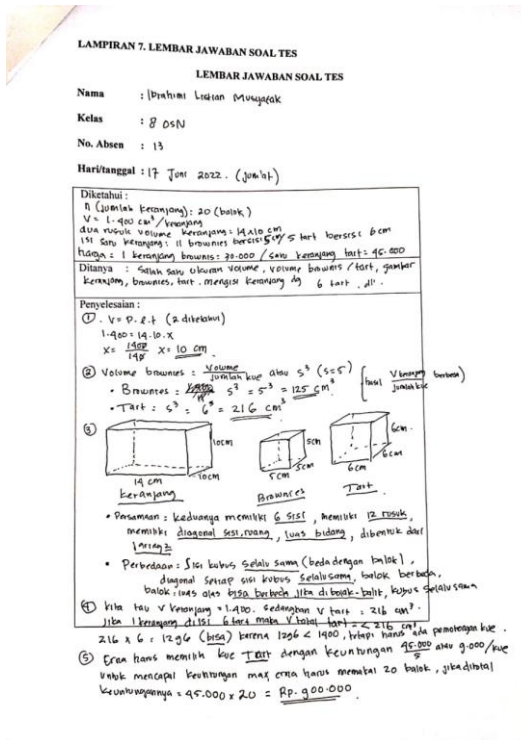 LAMPIRAN 7. LEMBAR JAWABAN SOAL TES
LEMBAR JAWABAN SOAL TES
Nama : Ibrahim
Kelas : 8 OSN
No. Absen : 13
Hari/tanggal : 17 Juni 2022. (Jum'at)
Diketahui :
n (jumlah keranjang) : 20 (balok)
V = 1.400 cm³/keranjang
dua rusuk volume keranjang = 14x10 cm
isi satu keranjang : 11 brownies bersisi 5cm / 5 tart bersisi 6 cm
harga = 1 keranjang brownis = 30.000 / satu keranjang tart = 45.000
Ditanya : Salah satu ukuran volume, volume brownis / tart, gambar
keranjang, brownies, tart. mengisi keranjang dg 6 tart. dll.
Penyelesaian :
①. V = p.l.t (2 diketahui)
1.400 = 14.10.x
x = 1400/140 x = 10 cm
② Volume brownies = Volume/jumlah kue atau s³ (s=5)
• Brownies = s³ = 5³ = 125 cm³ (hasil V keranjang/jumlah kue berbeda)
• Tart = s³ = 6³ = 216 cm³
③
10cm 5cm 6cm
14 cm 10cm 5cm 5cm 6cm 6cm
keranjang Brownies Tart
• Persamaan : keduanya memiliki 6 sisi, memiliki 12 rusuk,
memiliki diagonal sisi, ruang, luas bidang, dibentuk dari
jaring2
• Perbedaan : Sisi kubus selalu sama (beda dengan balok),
diagonal setiap sisi kubus selalu sama, balok berbeda,
balok : luas alas bisa berbeda jika di bolak-balik, kubus selalu sama
④ kita tau V keranjang = 1.400. sedangkan V tart = 216 cm³.
Jika 1 keranjang diisi 6 tart maka V total tart = 216 cm³
216 x 6 = 1296 (bisa) karena 1296 < 1400, tetapi harus ada pemotongan kue.
⑤ Erna harus memilih kue Tart dengan keuntungan 45.000/5 atau 9.000/kue
untuk mencapai keuntungan max erna harus memakai 20 balok, jika ditotal
keuntungannya = 45.000 x 20 = Rp. 900.000